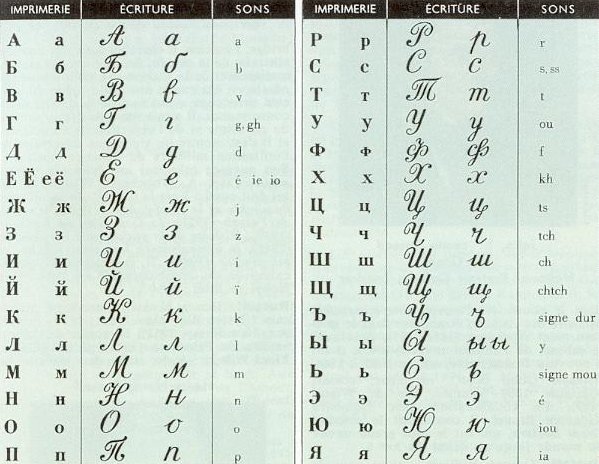 IMPRIMERIE ÉCRITURE SONS
А а А а a
Б б Б б b
В в В в v
Г г Г г g, gh
Д д Д д d
Е Ё е ё Е е é ie io
Ж ж Ж ж j
З з З з z
И и И и i
Й й Й й ï
К к К к k
Л л Л л l
М м М м m
Н н Н н n
О о О о o
П п П п p
IMPRIMERIE ÉCRITURE SONS
Р р Р р r
С с С с s, ss
Т т Т т t
У у У у ou
Ф ф Ф ф f
Х х Х х kh
Ц ц Ц ц ts
Ч ч Ч ч tch
Ш ш Ш ш ch
Щ щ Щ щ chtch
Ъ ъ Ъ ъ signe dur
Ы ы Ы ы ы y
Ь ь Ь ь signe mou
Э э Э э é
Ю ю Ю ю iou
Я я Я я ia